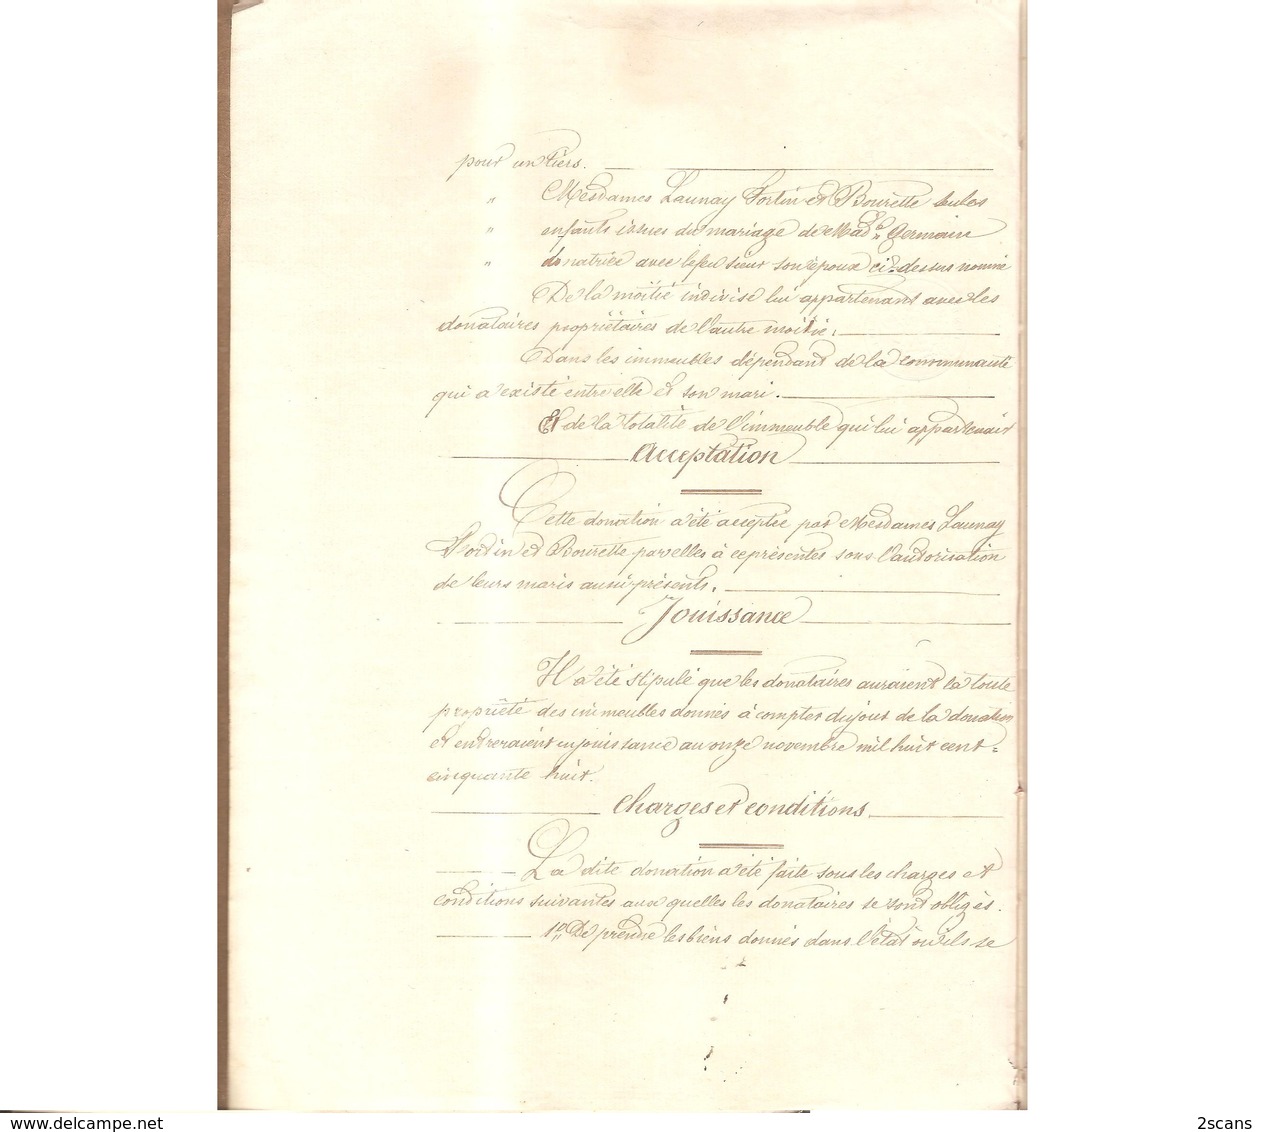 pour un tiers.
" Mesdames Launay Fortin et Bourette seules
" enfants issues du mariage de Made Germain
" donatrice avec le feu sieur son époux ci-dessus nommé
De la moitié indivise lui appartenant avec les
donataires propriétaires de l'autre moitié.
Dans les immeubles dépendant de la communauté
qui a existé entre elle et son mari.
Et de la totalité de l'immeuble qui lui appartenait
Acceptation
Cette donation a été acceptée par Mesdames Launay
Fortin et Bourette par elles à ce présentes sous l'autorisation
de leurs maris aussi présents.
Jouissance
Il a été stipulé que les donataires auraient la toute
propriété des immeubles donnés à compter du jour de la donation
et entreraient en jouissance au onze novembre mil huit cent=
cinquante huit.
Charges et conditions
La dite donation a été faite sous les charges et
conditions suivantes aux quelles les donataires se sont obligés.
1o De prendre les biens donnés dans l'état où ils se
www.delcampe.net
2scans